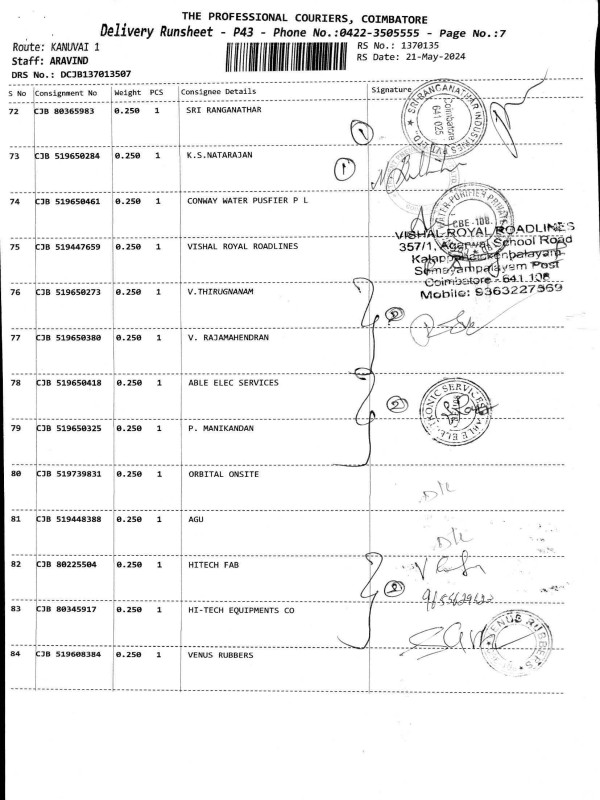 THE PROFESSIONAL COURIERS, COIMBATORE
Delivery Runsheet - P43 - Phone No.:0422-3505555 - Page No.:7
Route: KANUVAI 1
RS No.: 1370135
Staff: ARAVIND
RS Date: 21-May-2024
DRS No.: DCJB137013507
S No Consignment No Weight PCS Consignee Details Signature
72 CJB 80365983 0.250 1 SRI RANGANATHAR
SRI RANGANATHAR INDUSTRIES PVT LTD
Coimbatore
641 025
1
73 CJB 519650284 0.250 1 K.S.NATARAJAN
1
74 CJB 519650461 0.250 1 CONWAY WATER PUSFIER P L
WATER PURIFIER PRIVATE
CBE-108
75 CJB 519447659 0.250 1 VISHAL ROYAL ROADLINES
VISHAL ROYAL ROADLINES
357/1, Agarwal School Road
Kalappanaickenpalayam
Somayampalayam Post
Coimbatore - 641 108
Mobile: 9363227569
76 CJB 519650273 0.250 1 V.THIRUGNANAM
77 CJB 519650380 0.250 1 V. RAJAMAHENDRAN
78 CJB 519650418 0.250 1 ABLE ELEC SERVICES
2
ABLE ELECTRONIC SERVICES
79 CJB 519650325 0.250 1 P. MANIKANDAN
80 CJB 519739831 0.250 1 ORBITAL ONSITE
D/c
81 CJB 519448388 0.250 1 AGU
D/c
82 CJB 80225504 0.250 1 HITECH FAB
2
83 CJB 80345917 0.250 1 HI-TECH EQUIPMENTS CO
VENUS RUBBERS
84 CJB 519608384 0.250 1 VENUS RUBBERS